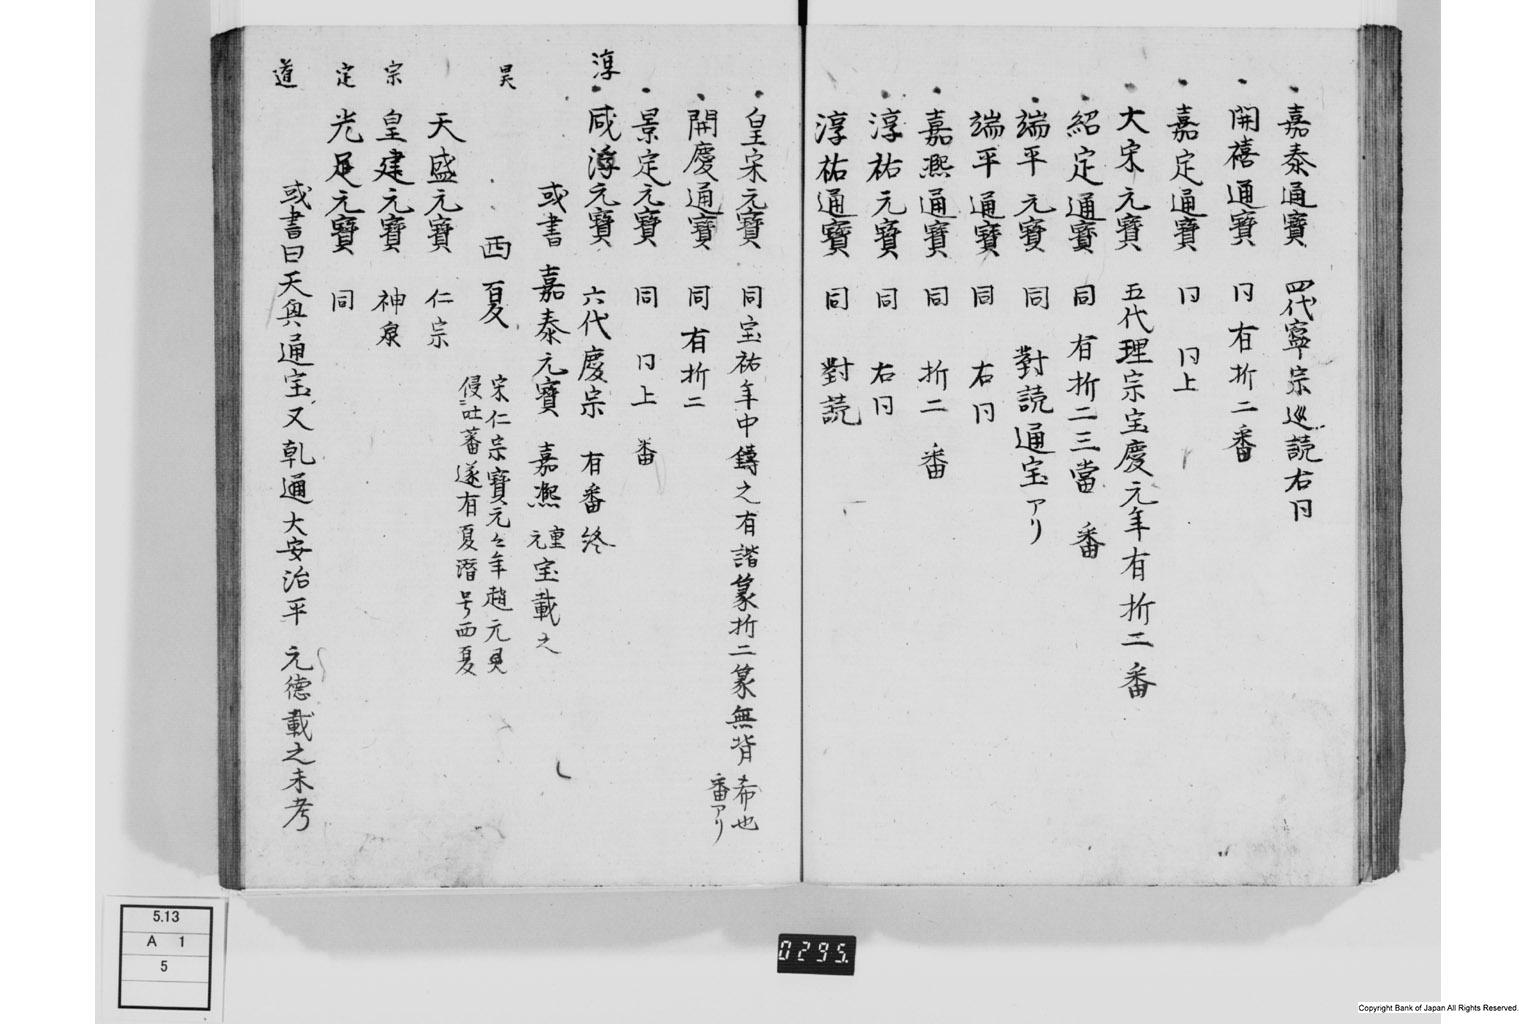 嘉泰通寳 四代寧宗巡読右冋
開禧通寳 冋有折二番
嘉定通寳 冋 冋上
大宋元寳 五代理宗宝慶元年有折二番
紹定通寳 同 有折二三當 番
端平元寳 同 對読通宝アリ
端平通寳 同 右冋
嘉熙通寳 同 折二 番
淳祐元寳 同 右冋
淳祐通寳 同 對読
皇宋元寳 同宝祐年中鑄之有諧篆折二篆無背 希也
番アリ
開慶通寳 同 有折二
景定元寳 同 冋上 番
淳
咸淳元寳 六代慶宗 有番終
或書 嘉泰元寳 嘉熙 重元宝載之
昊
西夏
宋仁宗寳元々年趙元
侵吐蕃遂有夏潛号西夏
天盛元寳 仁宗
宗
皇建元寳 神
定
光元寳 同
道
或書曰天典通宝又乹通大安治平 元德載之未考
0295.
5.13
A 1
5
Copyright Bank of Japan All Rights Reserved.